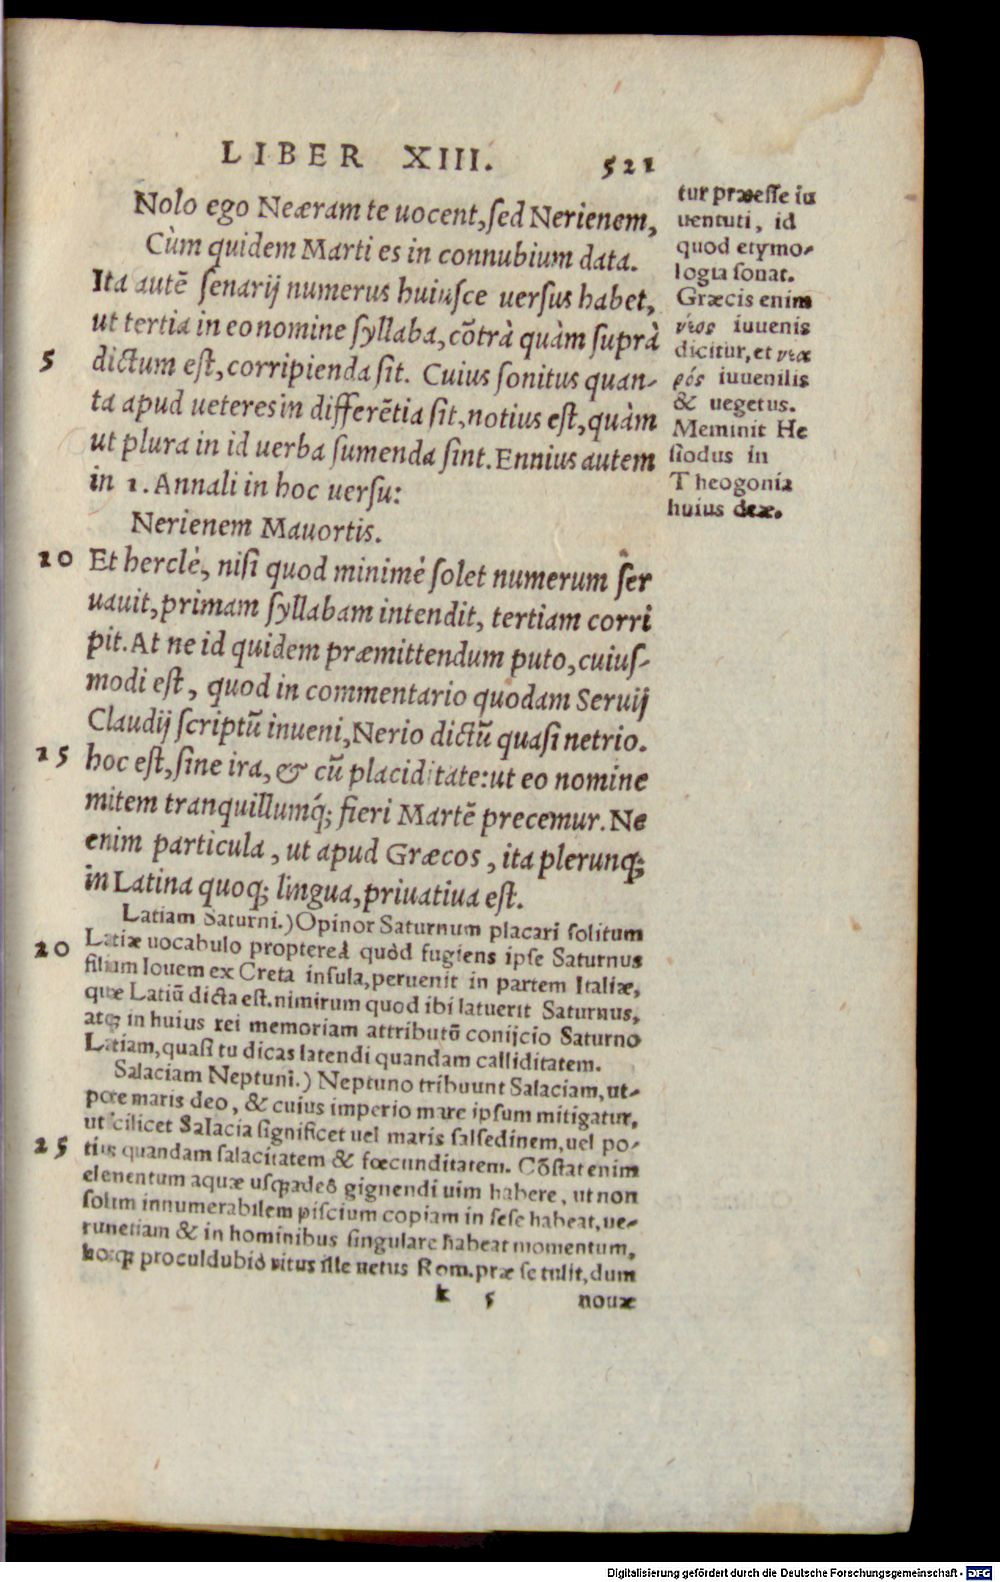 LIBER XIII. 521
Nolo ego Neæram te uocent, ſed Nerienem,
Cùm quidem Marti es in connubium data.
Ita autē ſenarij numerus huiuſce uerſus habet,
ut tertia in eo nomine ſyllaba, cōtrà quàm ſuprà
5 dictum eſt, corripienda ſit. Cuius ſonitus quan-
ta apud ueteres in differētia ſit, notius eſt, quàm
ut plura in id uerba ſumenda ſint. Ennius autem
in 1. Annali in hoc uerſu:
Nerienem Mauortis.
10 Et herclè, niſi quod minimè ſolet numerum ſer
uauit, primam ſyllabam intendit, tertiam corri
pit. At ne id quidem præmittendum puto, cuiuſ-
modi eſt, quod in commentario quodam Seruij
Claudij ſcriptū inueni, Nerio dictū quaſi netrio.
15 hoc eſt, ſine ira, & cū placiditate: ut eo nomine
mitem tranquillumq́; fieri Martē precemur. Ne
enim particula, ut apud Græcos, ita plerunq;
in Latina quoq; lingua, priuatiua eſt.
Latiam Saturni.) Opinor Saturnum placari ſolitum
20 Latiæ uocabulo propterea quòd fugiens ipſe Saturnus
filium Iouem ex Creta inſula, peruenit in partem Italiæ,
quæ Latiū dicta eſt. nimirum quod ibi latuerit Saturnus,
atq; in huius rei memoriam attributū conijcio Saturno
Latiam, quaſi tu dicas latendi quandam calliditatem.
Salaciam Neptuni.) Neptuno tribuunt Salaciam, ut-
pote maris deo, & cuius imperio mare ipſum mitigatur,
ut ſcilicet Salacia ſignificet uel maris ſalſedinem, uel po-
25 tius quandam ſalacitatem & fœcunditatem. Cōſtat enim
elementum aquæ uſq; adeò gignendi uim habere, ut non
ſolum innumerabilem piſcium copiam in ſeſe habeat, ue-
rum etiam & in hominibus ſingulare habeat momentum,
hocq; proculdubiò ritus ille uetus Rom. præ ſe tulit, dum
k 5 nouæ
tur præeſſe iu
uentuti, id
quod etymo-
logia ſonat.
Græcis enim
νέος iuuenis
dicitur, et νεα
ρός iuuenilis
& uegetus.
Meminit He
ſiodus in
Theogonia
huius deæ.
Digitalisierung gefördert durch die Deutsche Forschungsgemeinschaft - DFG